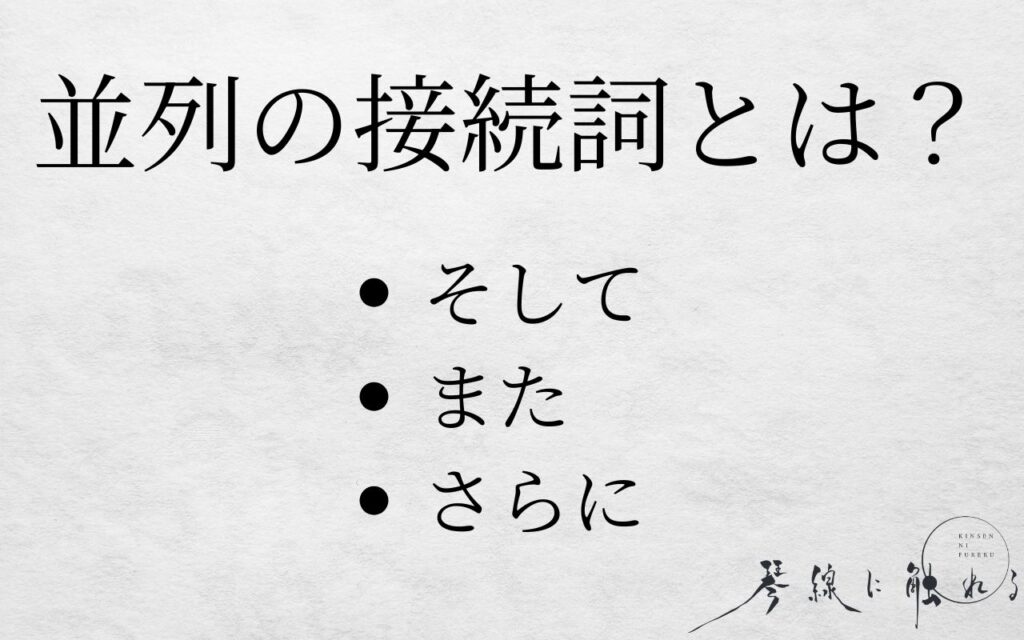 並列の接続詞とは？
• そして
• また
• さらに
KINSEN
NI
FURERU
琴線に触れる